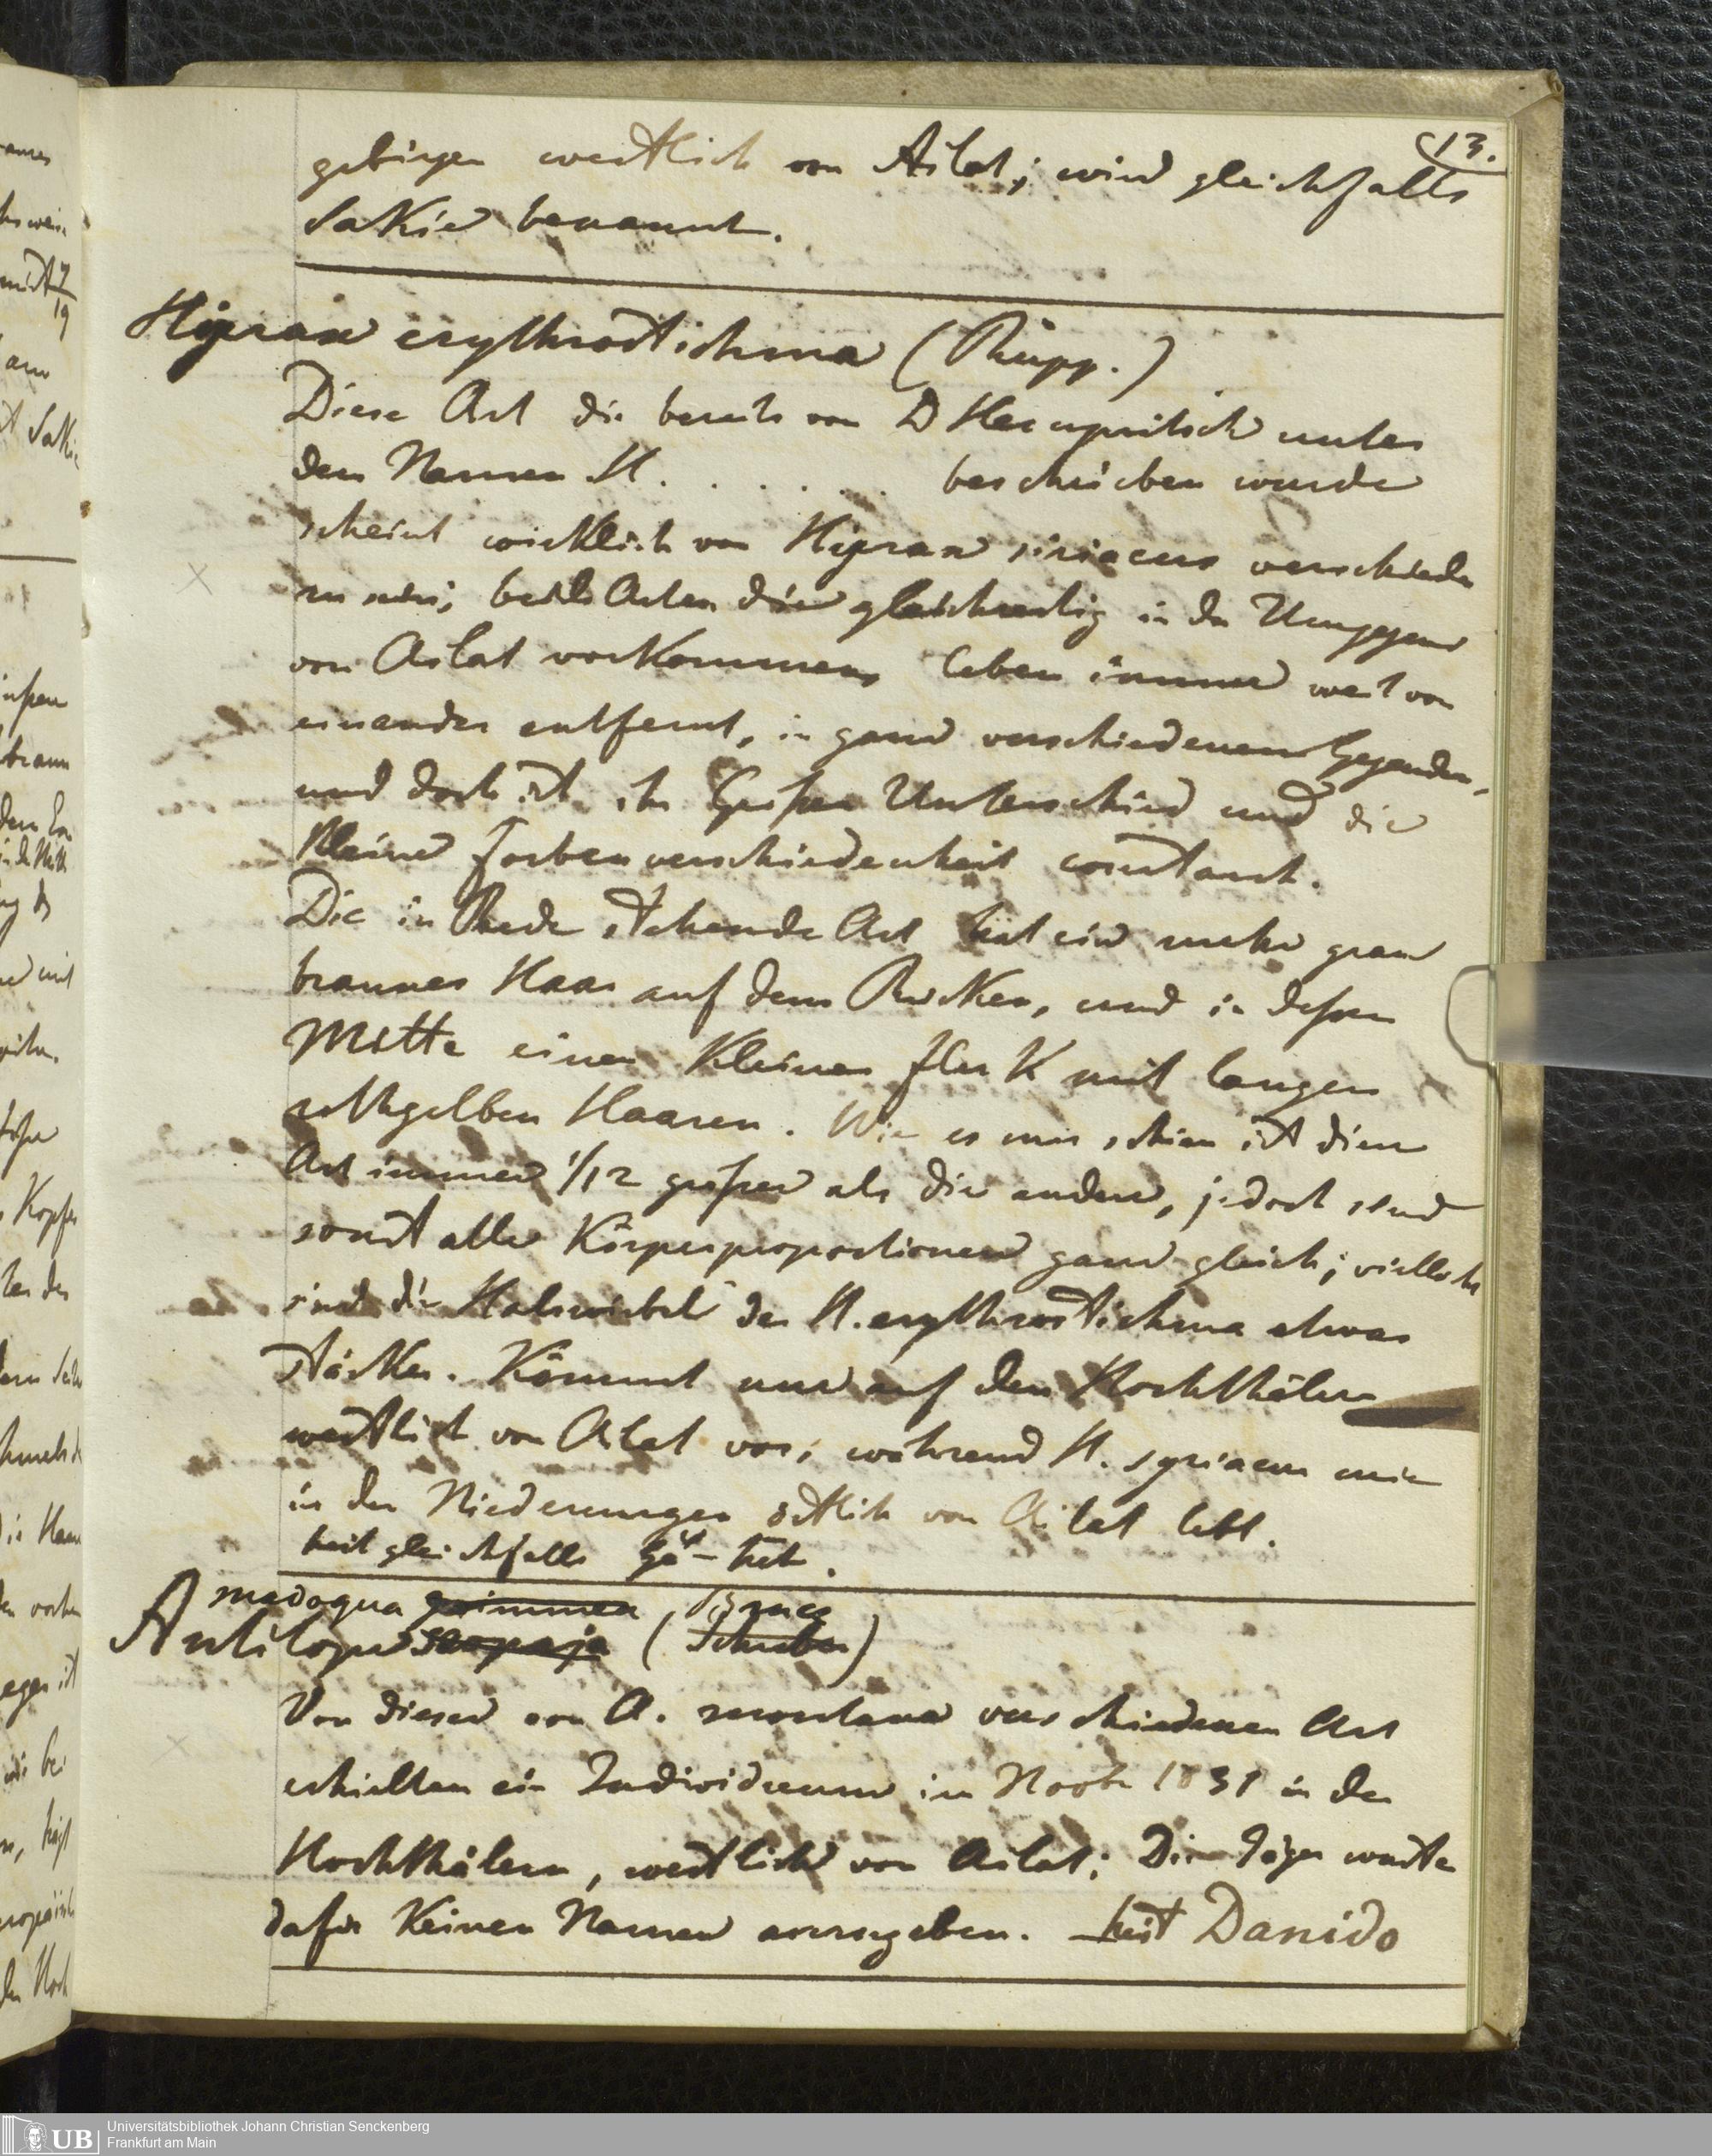 13.
gebirgen westlich von Ailat; wird gleichfalls
Sakie benannt.
Hiprax erythrostichma (Rüpp.)
Diese Art die bereits von D Hempritsch unter
dem Namen H. . . . . . beschrieben wurde
scheint wirklich von Hiprax siriacus verschieden
zu sein; beide Arten die gleichzeitig in der Umgegend
von Ailat vorkommen, leben immer weit von
einander entfernt, in ganz verschiedenen Gegenden,
und doch ist ihr Größen Unterschied und die
kleine Farbenverschiedenheit constant.
Die in Rede stehende Art hat ein mehr grau
braunes Haar auf dem Rücken, und in deßen
Mitte einen kleinen Fleck mit langen
rothgelben Haaren. Wie es mir schien ist diese
Art immer 1/12 größer als die andere, jedoch sind
sonst alle Körperproportionen ganz gleich; vielleicht
sind die Halswirbel der H. erythrostichma etwas
stärker. Kömmt nur auf den Hochthälern
westlich von Ailat vor, während H. syriacus nur
in den Niederungen östlich von Ailat lebt.
heist gleichfalls Gë-heh.
madoqua grimmea Bruce
Antilope scopaja (Schreber)
Von dieser von A. montana verschiedenen Art
erhielten ein Individuum in Novbr 1831 in den
Hochthälern, westlich von Ailat; Die Jäger wusten
dafür keinen Namen anzugeben. heist Danido
Universitätsbibliothek Johann Christian Senckenberg
Frankfurt am Main
UB